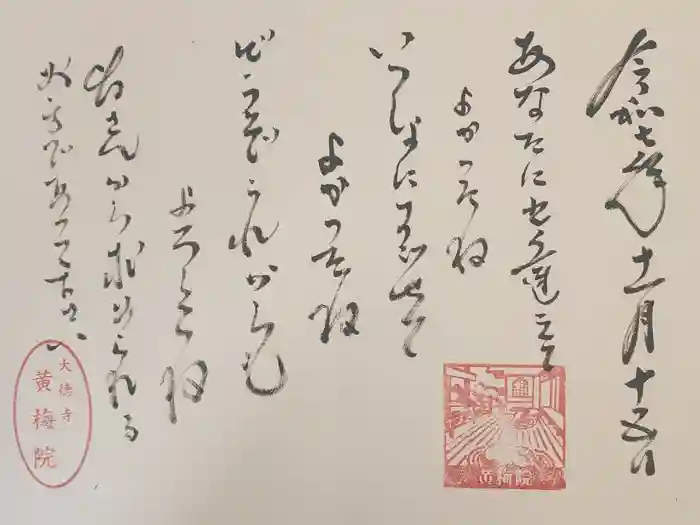 令和七年十一月十五日
あなたに出逢えて
よかったね
いっしょに
よかったね
どうぞこれからも
よろしくね
さんから求められる
であって下さい
大徳寺
黄梅院
黄梅院